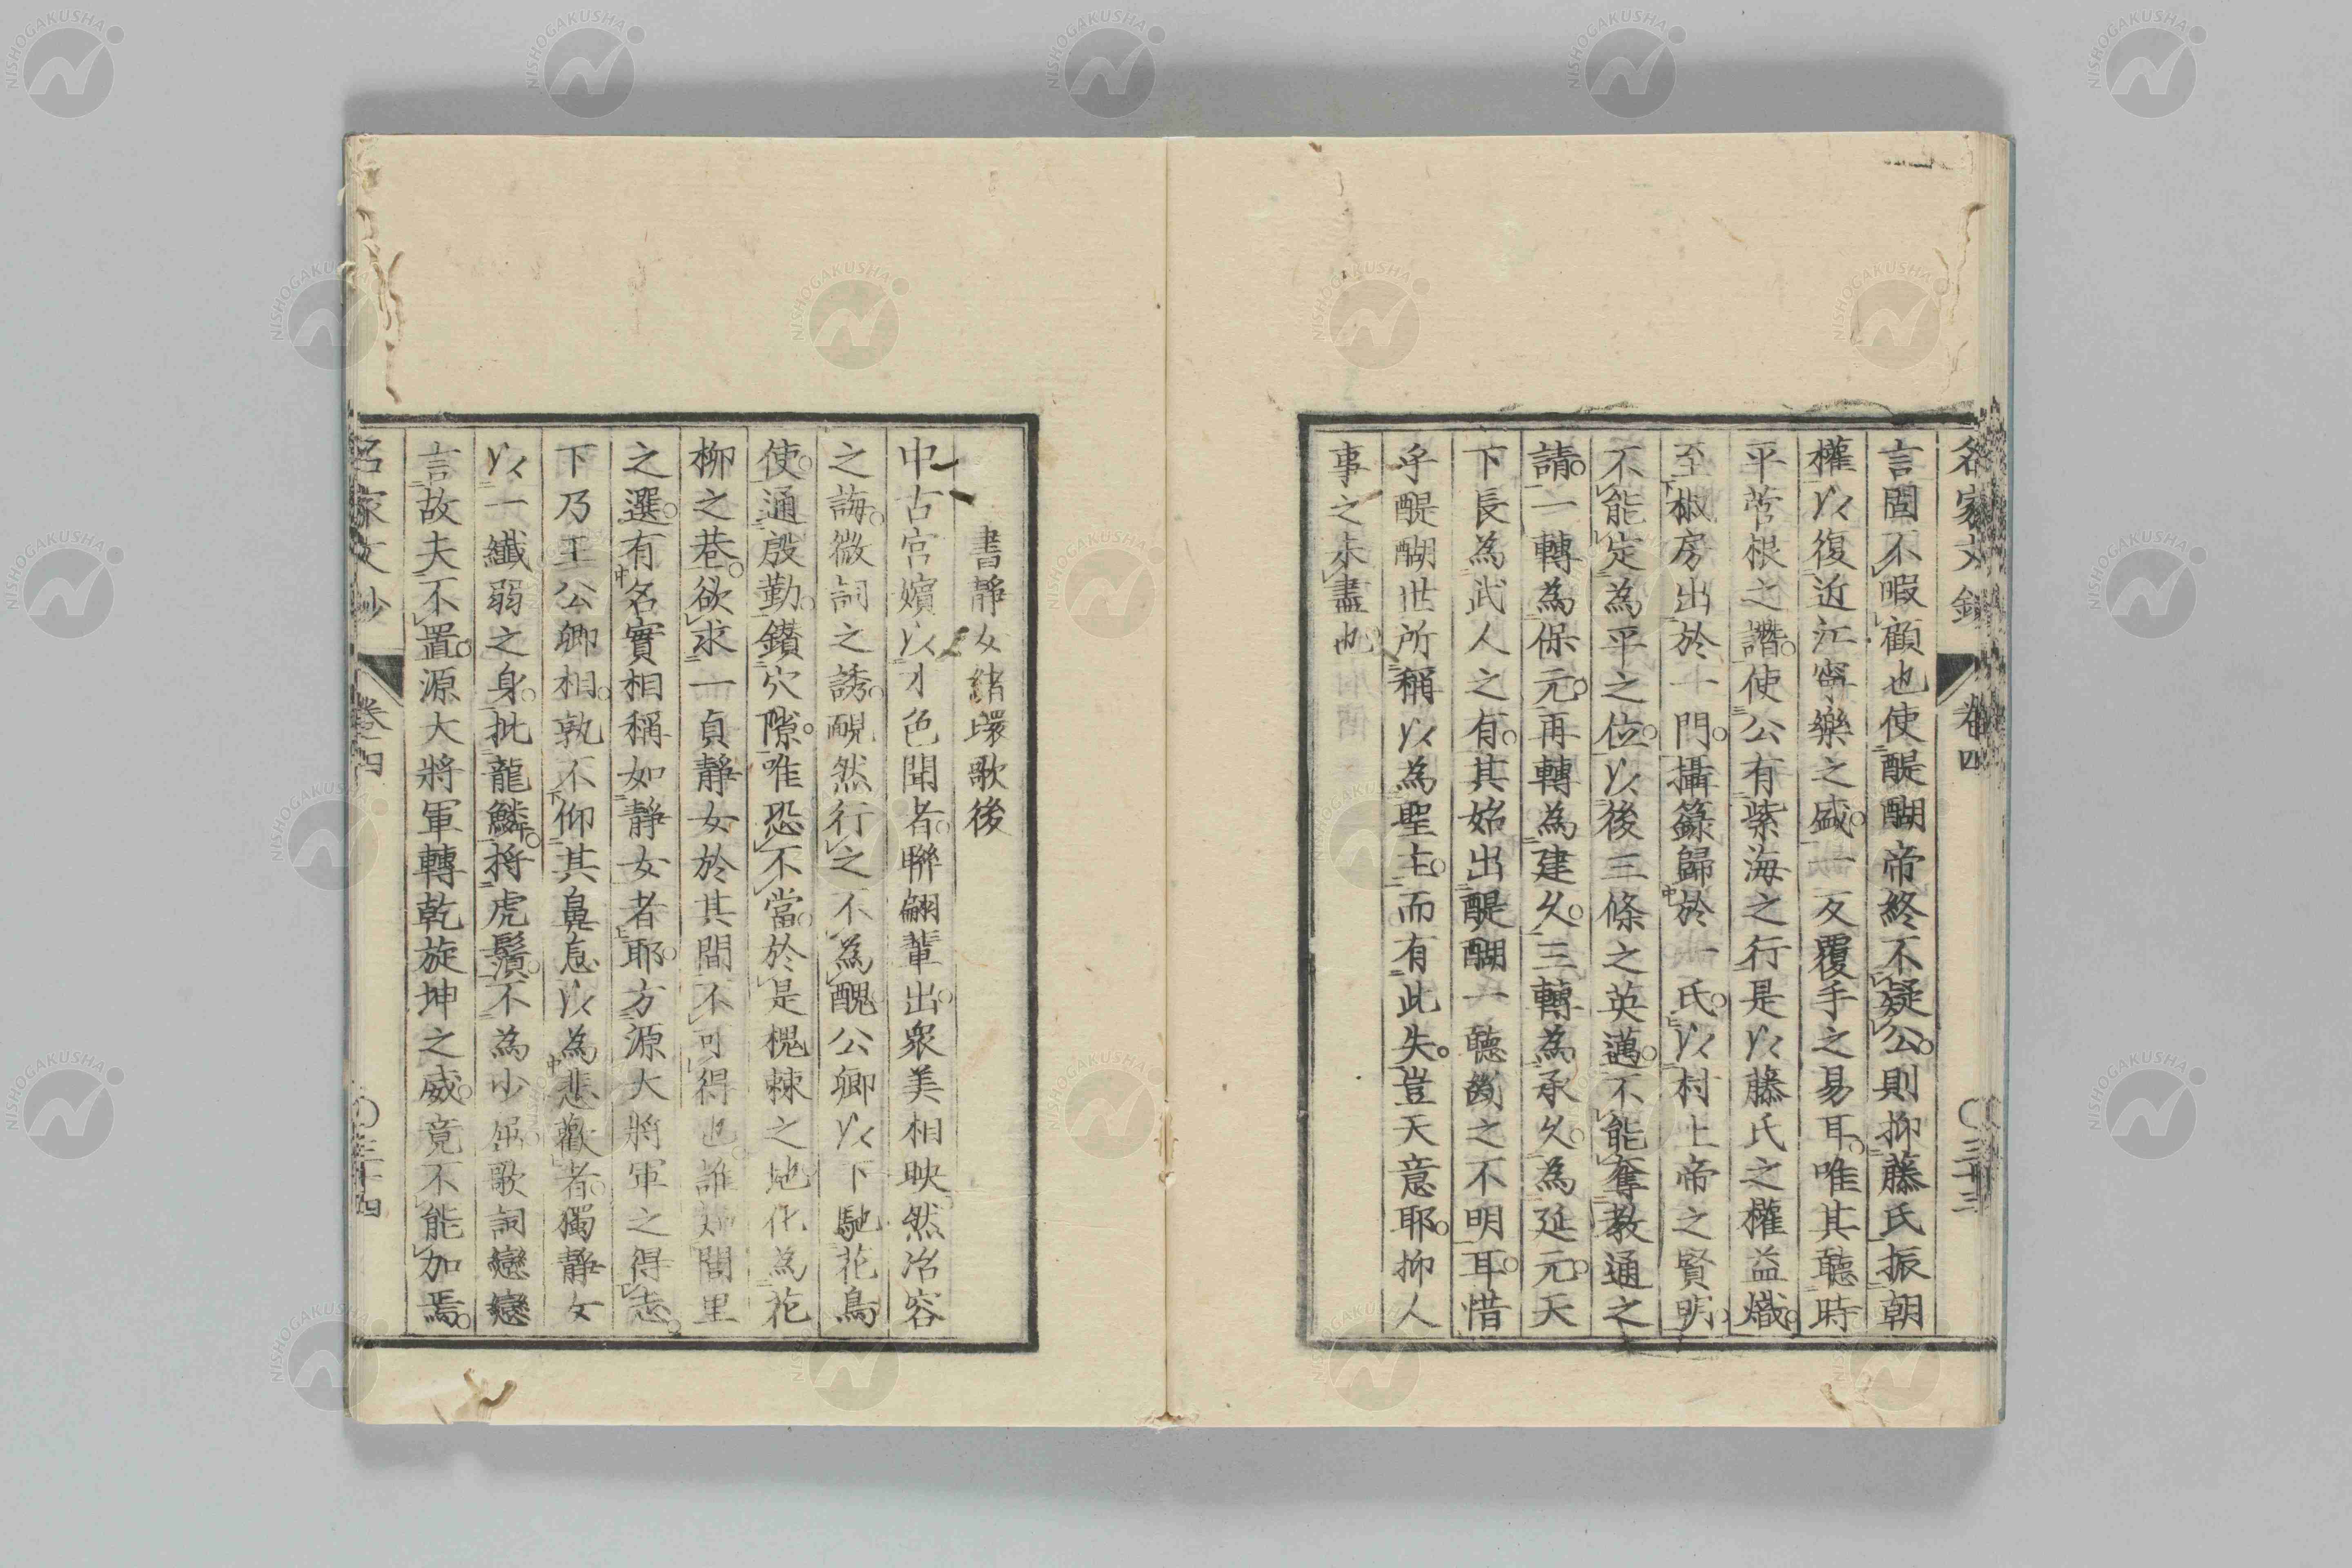 名家文鈔 卷四 〇三十三
言固不暇顧也使醍醐帝終不疑公則抑藤氏振朝
權以復近江寧樂之盛一反覆手之易耳唯其聽時
平菅根之譖使公有紫海之行是以藤氏之權益熾
至椒房出於一門攝籙歸於一氏以村上帝之賢明
不能定為平之位以後三條之英邁不能奪教通之
請一轉為保元再轉為建久三轉為承久為延元天
下長為武人之有其始出醍醐一聽斷之不明耳惜
乎醍醐世所稱以為聖主而有此失豈天意耶抑人
事之未盡也
書靜女緒環歌後
中古宮嬪以才色聞者聯翩輩出衆美相映然冶容
之誨微詞之誘靦然行之不為醜公卿以下馳花鳥
使通殷勤鑽穴隙唯恐不當於是槐棘之地化為花
柳之巷欲求一貞靜女於其間不可得也誰 閭里
之選有名實相稱如靜女者耶方源大將軍之得志
下乃王公卿相孰不仰其鼻息以為悲歡者獨靜女
以一纖弱之身批龍鱗捋虎鬚不為少屈歌詞戀戀
言故夫不置源大將軍轉乾旋坤之威竟不能加焉
名家文鈔 卷四 〇三十四
NISHOGAKUSHA